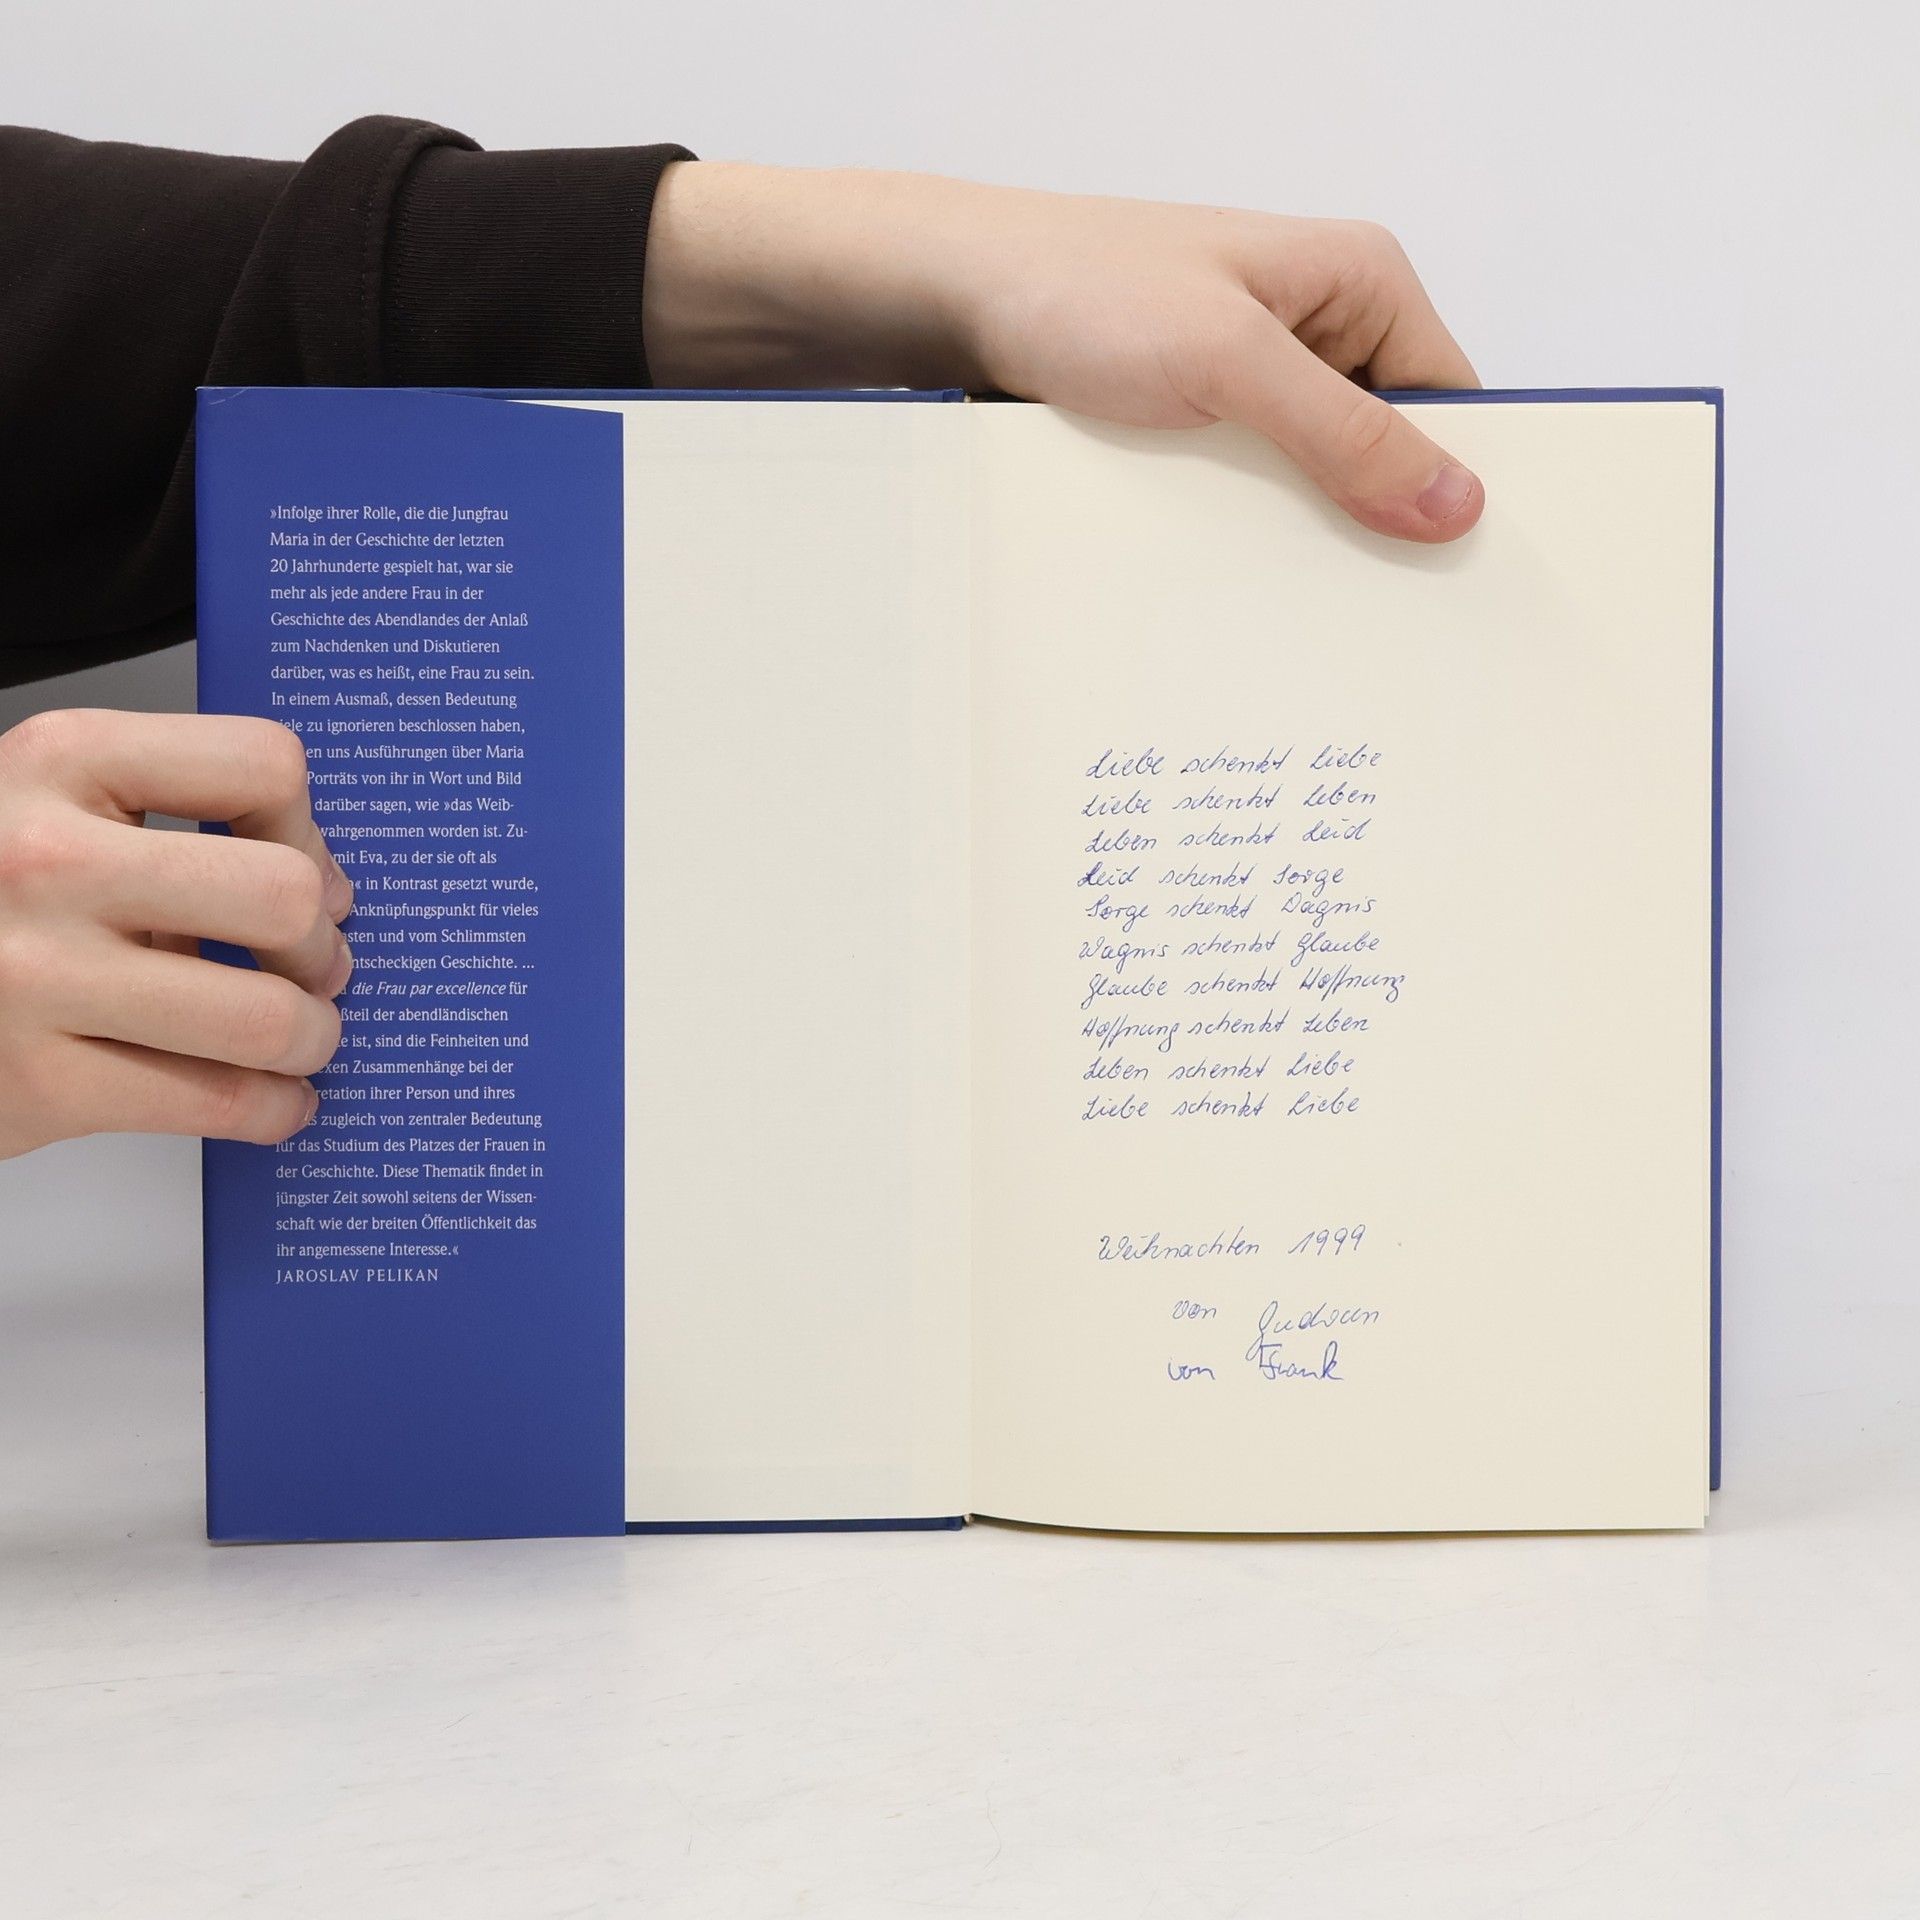 »Infolge ihrer Rolle, die die Jungfrau
Maria in der Geschichte der letzten
20 Jahrhunderte gespielt hat, war sie
mehr als jede andere Frau in der
Geschichte des Abendlandes der Anlaß
zum Nachdenken und Diskutieren
darüber, was es heißt, eine Frau zu sein.
In einem Ausmaß, dessen Bedeutung
zu ignorieren beschlossen haben,
uns Ausführungen über Maria
Porträts von ihr in Wort und Bild
darüber sagen, wie »das Weib-
wahrgenommen worden ist. Zu-
mit Eva, zu der sie oft als
in Kontrast gesetzt wurde,
Anknüpfungspunkt für vieles
und vom Schlimmsten
Geschichte. ...
die Frau par excellence für
der abendländischen
ist, sind die Feinheiten und
Zusammenhänge bei der
ihrer Person und ihres
zugleich von zentraler Bedeutung
für das Studium des Platzes der Frauen in
der Geschichte. Diese Thematik findet in
jüngster Zeit sowohl seitens der Wissen-
schaft wie der breiten Öffentlichkeit das
ihr angemessene Interesse.«
JAROSLAV PELIKAN
Liebe schenkt Liebe
Liebe schenkt Leben
Leben schenkt Leid
Leid schenkt Sorge
Sorge schenkt Wagnis
Wagnis schenkt Glaube
Glaube schenkt Hoffnung
Hoffnung schenkt Leben
Leben schenkt Liebe
Liebe schenkt Liebe
Weihnachten 1999
von Gudrun
von Frank